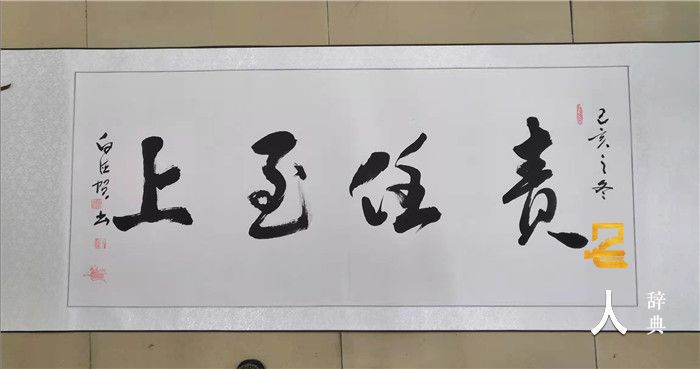 己亥之冬
责任至上
白臣智书
人
辞典